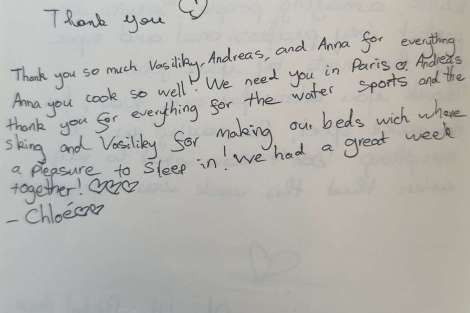 Thank you
Thank you so much Vasiliky, Andreas, and Anna for everything.
Anna you cook so well! We need you in Paris. Andreas
thank you for everything for the water sports and the
sking and Vasiliky for making our beds wich whare
a pleasure to sleep in! We had a great week
together! ♡♡♡
- Chloé♡♡